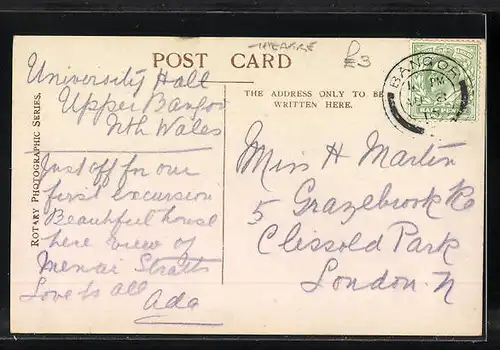 THEATRE
£3
POST CARD
THE ADDRESS ONLY TO BE
WRITTEN HERE.
ROTARY PHOTOGRAPHIC SERIES.
BANGOR
University Hall
Upper Bangor
Nth Wales
Just off for our
first excursion
Beautiful house
here view of
Menai Straits
Love to all
Ada
Miss H Martin
5 Grazebrook Rd
Clissold Park
London. N